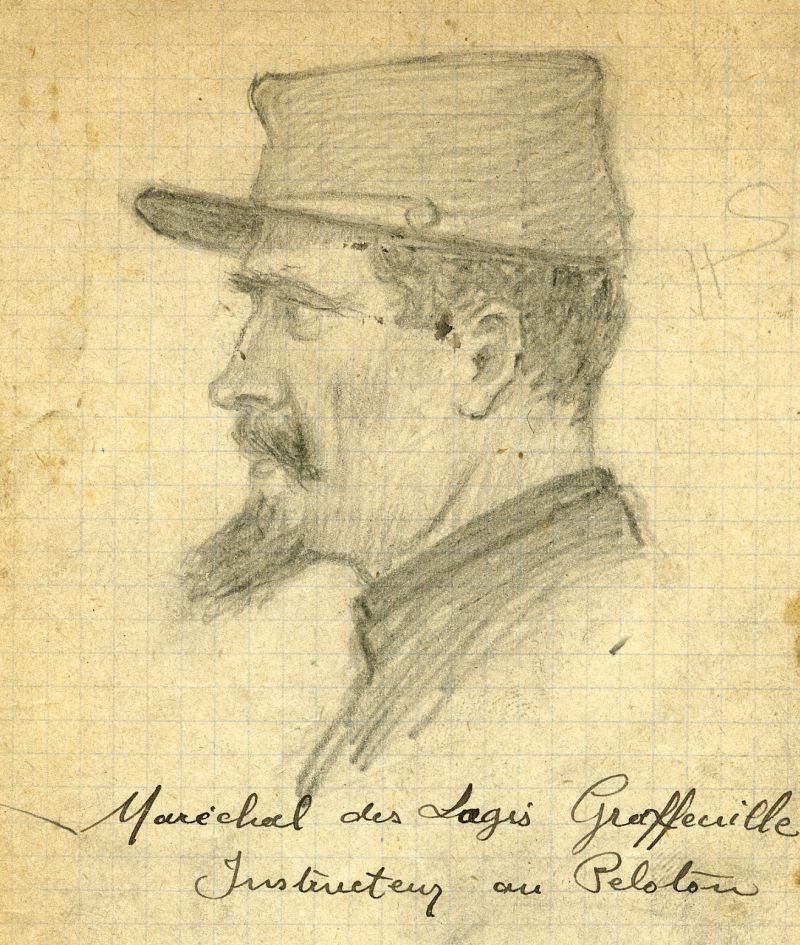 HS
Maréchal des Logis Graffeuille
Instructeur au Peloton